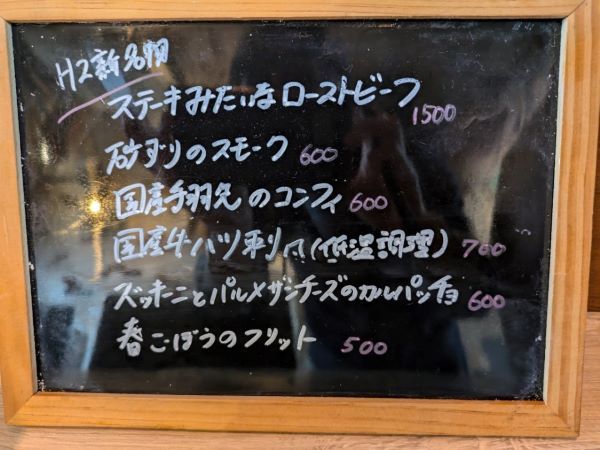 H2新名物
ステーキみたいなローストビーフ 1500
砂ずりのスモーク 600
国産手羽先のコンフィ 600
国産牛ハツ刺し(低温調理) 700
ズッキーニとパルメザンチーズのカルパッチョ 600
春ごぼうのフリット 500